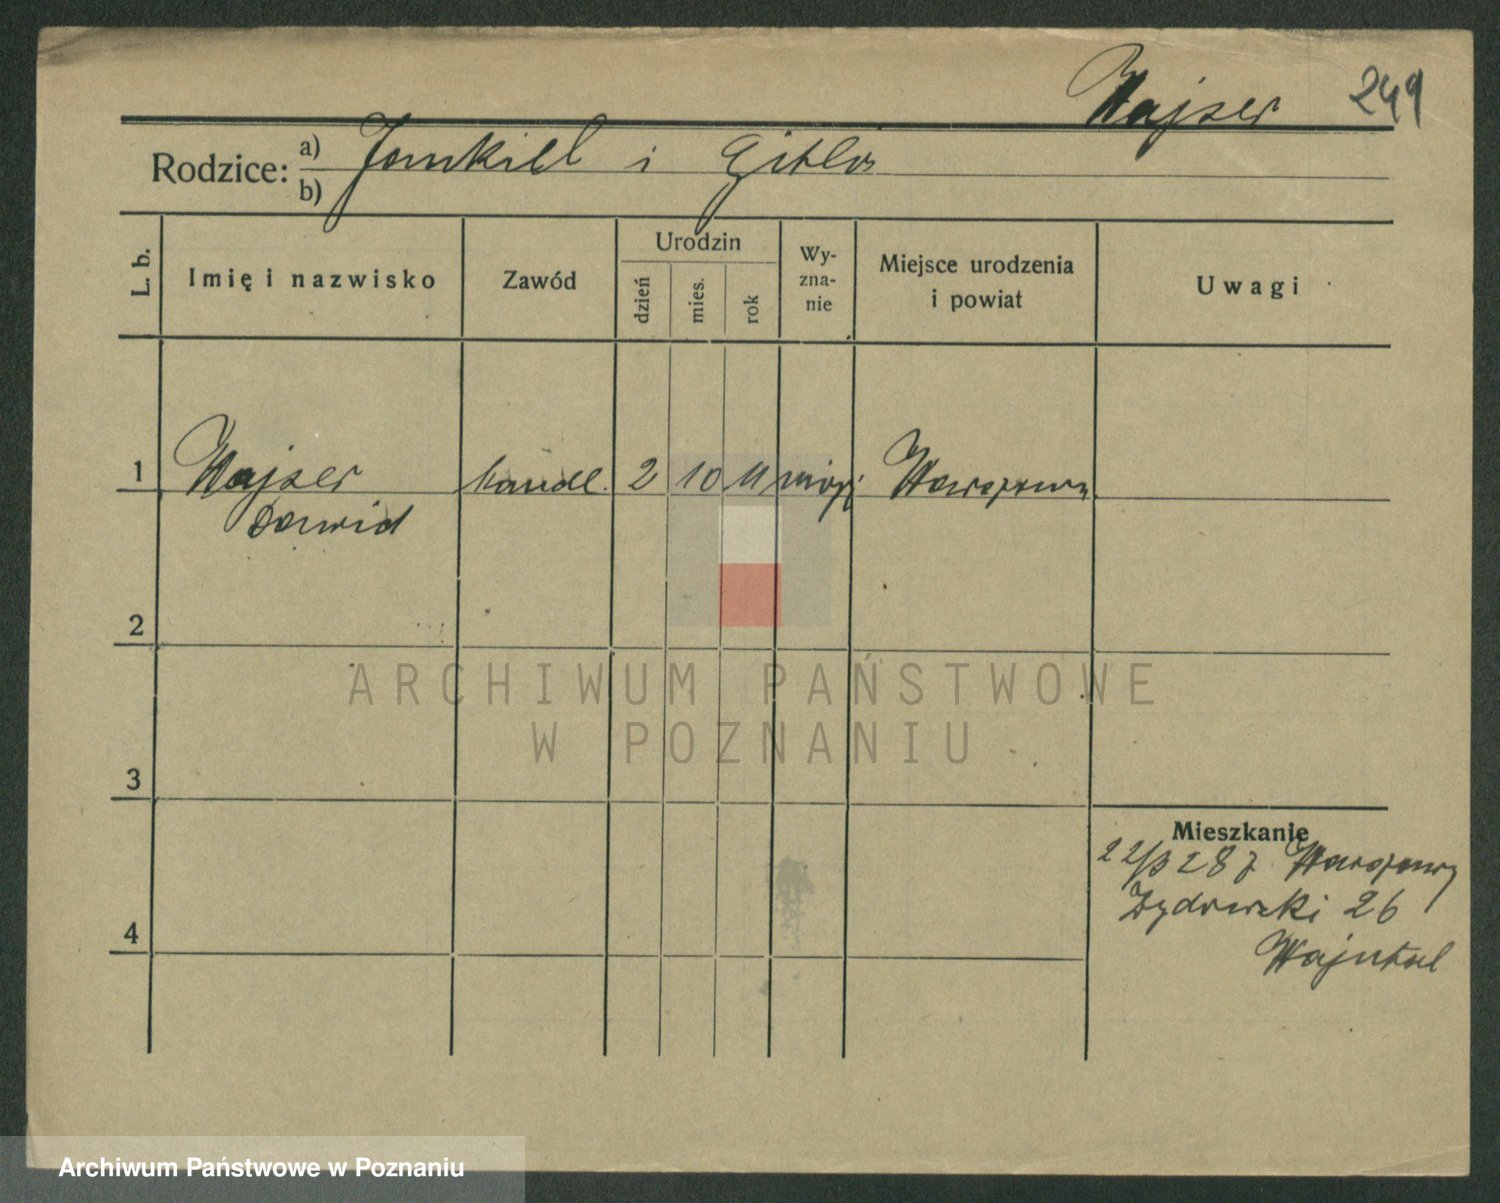 Wajser 249
Rodzice: a) Jankiel i Gitla
b)
L. b.
Imię i nazwisko
Zawód
Urodzin
dzień
mies.
rok
Wy-
zna-
nie
Miejsce urodzenia
i powiat
Uwagi
1 Wajser handl. 2 10 11 mojż Warszawa
Dawid
2
3
4
Mieszkanie
22/3 28 z Warszawy
Żydowski 26
Wajntal
ARCHIWUM PAŃSTWOWE
W POZNANIU
Archiwum Państwowe w Poznaniu